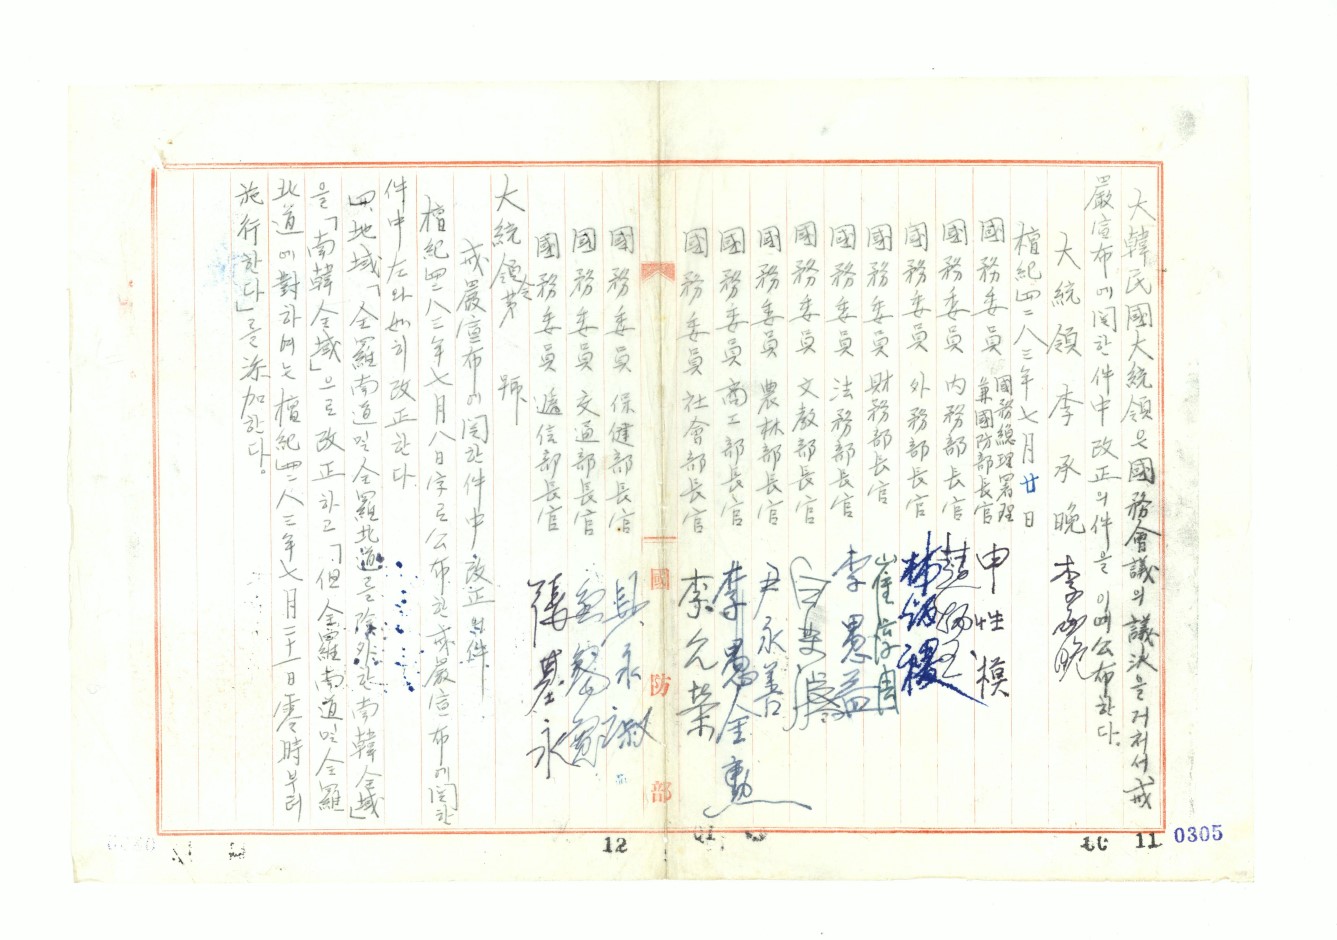 大韓民國大統領은國務會議의議決을거처서戒
嚴宣布에関한件中改正의件을이에公布한다.
大統領 李承晩 李承晩
檀紀四二八三年七月廿日
國務委員 國務總理署理
兼國防部長官 申性模
國務委員 內務部長官
國務委員 外務部長官 林炳稷
國務委員 財務部長官 崔淳周
國務委員 法務部長官 李愚益
國務委員 文敎部長官
國務委員 農林部長官 尹永善
國務委員 商工部長官
國務委員 社會部長官 李允榮
國防部
國務委員 保健部長官
國務委員 交通部長官
國務委員 遞信部長官 張基永
大統領令第 號
戒嚴宣布에関한件中改正의件
檀紀四二八三年七月八日字로公布한戒嚴宣布에関한
件中左와如히改正한다.
四、地域「全羅南道및全羅北道를除外한南韓全域」
을「南韓全域」으로改正하고「但全羅南道및全羅
北道에對하여는檀紀四二八三年七月二十一日零時부터
施行한다」를添加한다.
12
11
0305